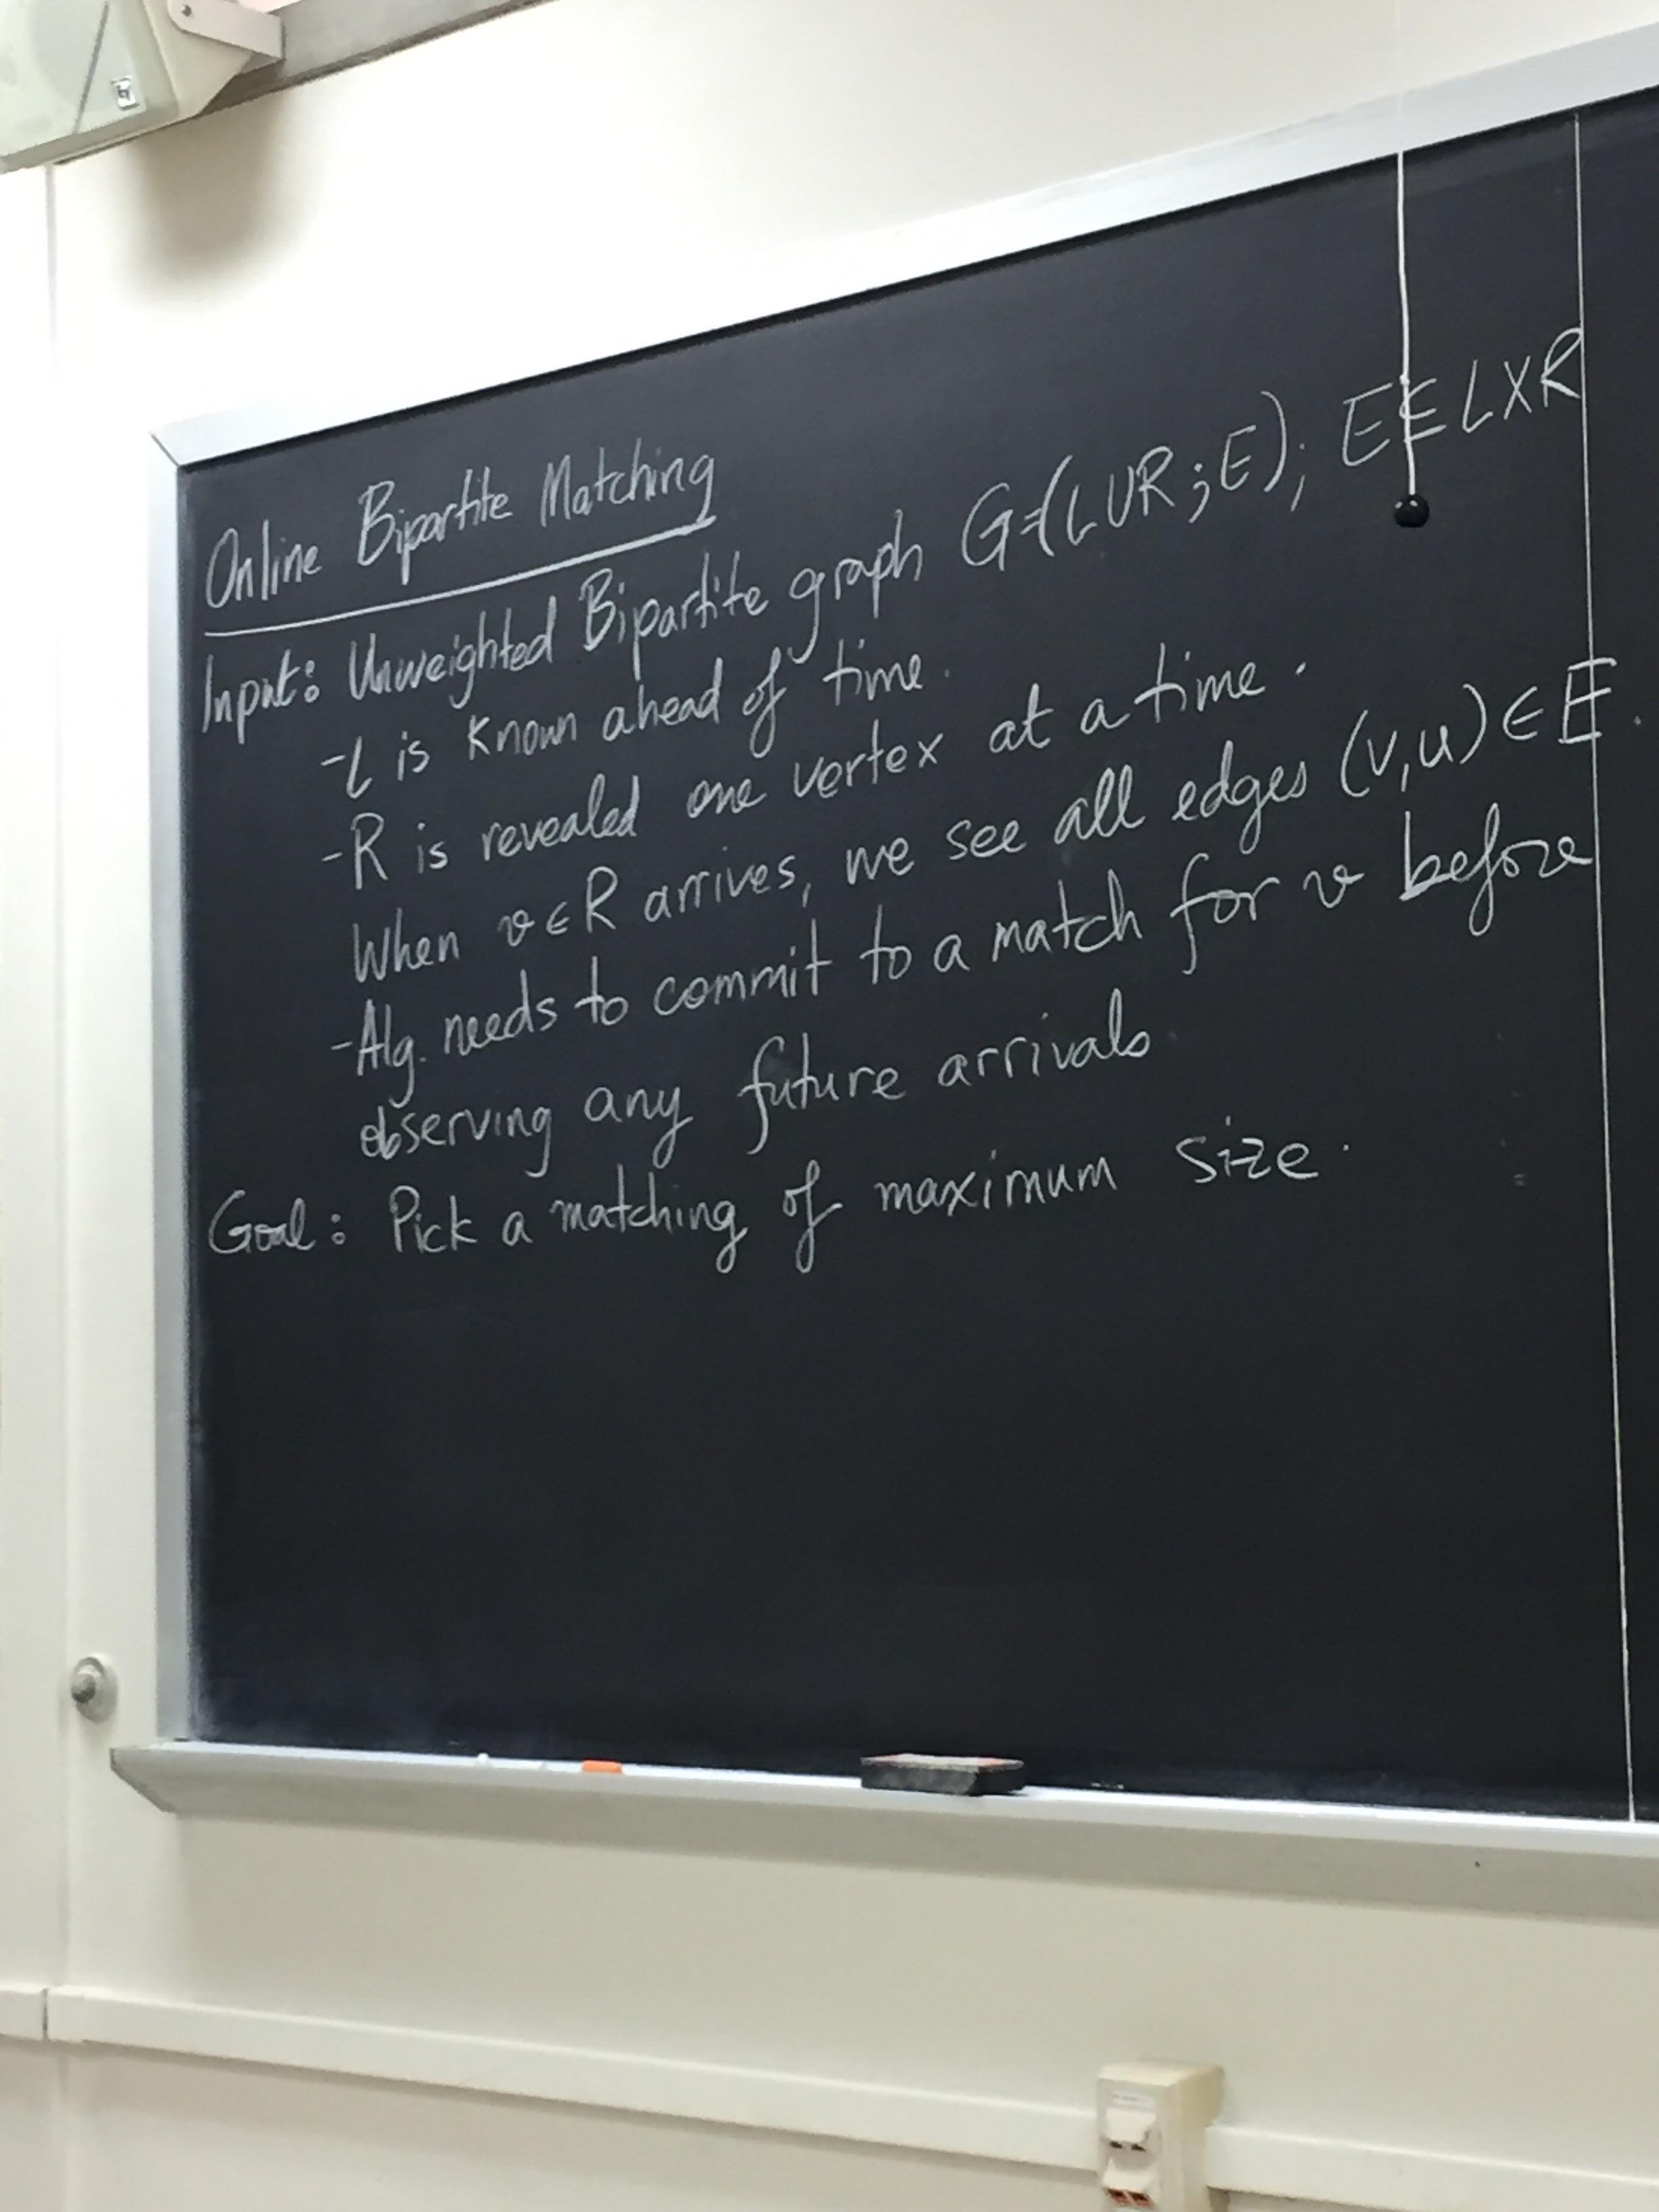 Online Bipartite Matching
Input: Unweighted Bipartite graph G=(L∪R;E); E⊆L×R
-L is known ahead of time.
-R is revealed one vertex at a time.
When v∈R arrives, we see all edges (v,u)∈E.
-Alg. needs to commit to a match for v before
observing any future arrivals
Goal: Pick a matching of maximum size.